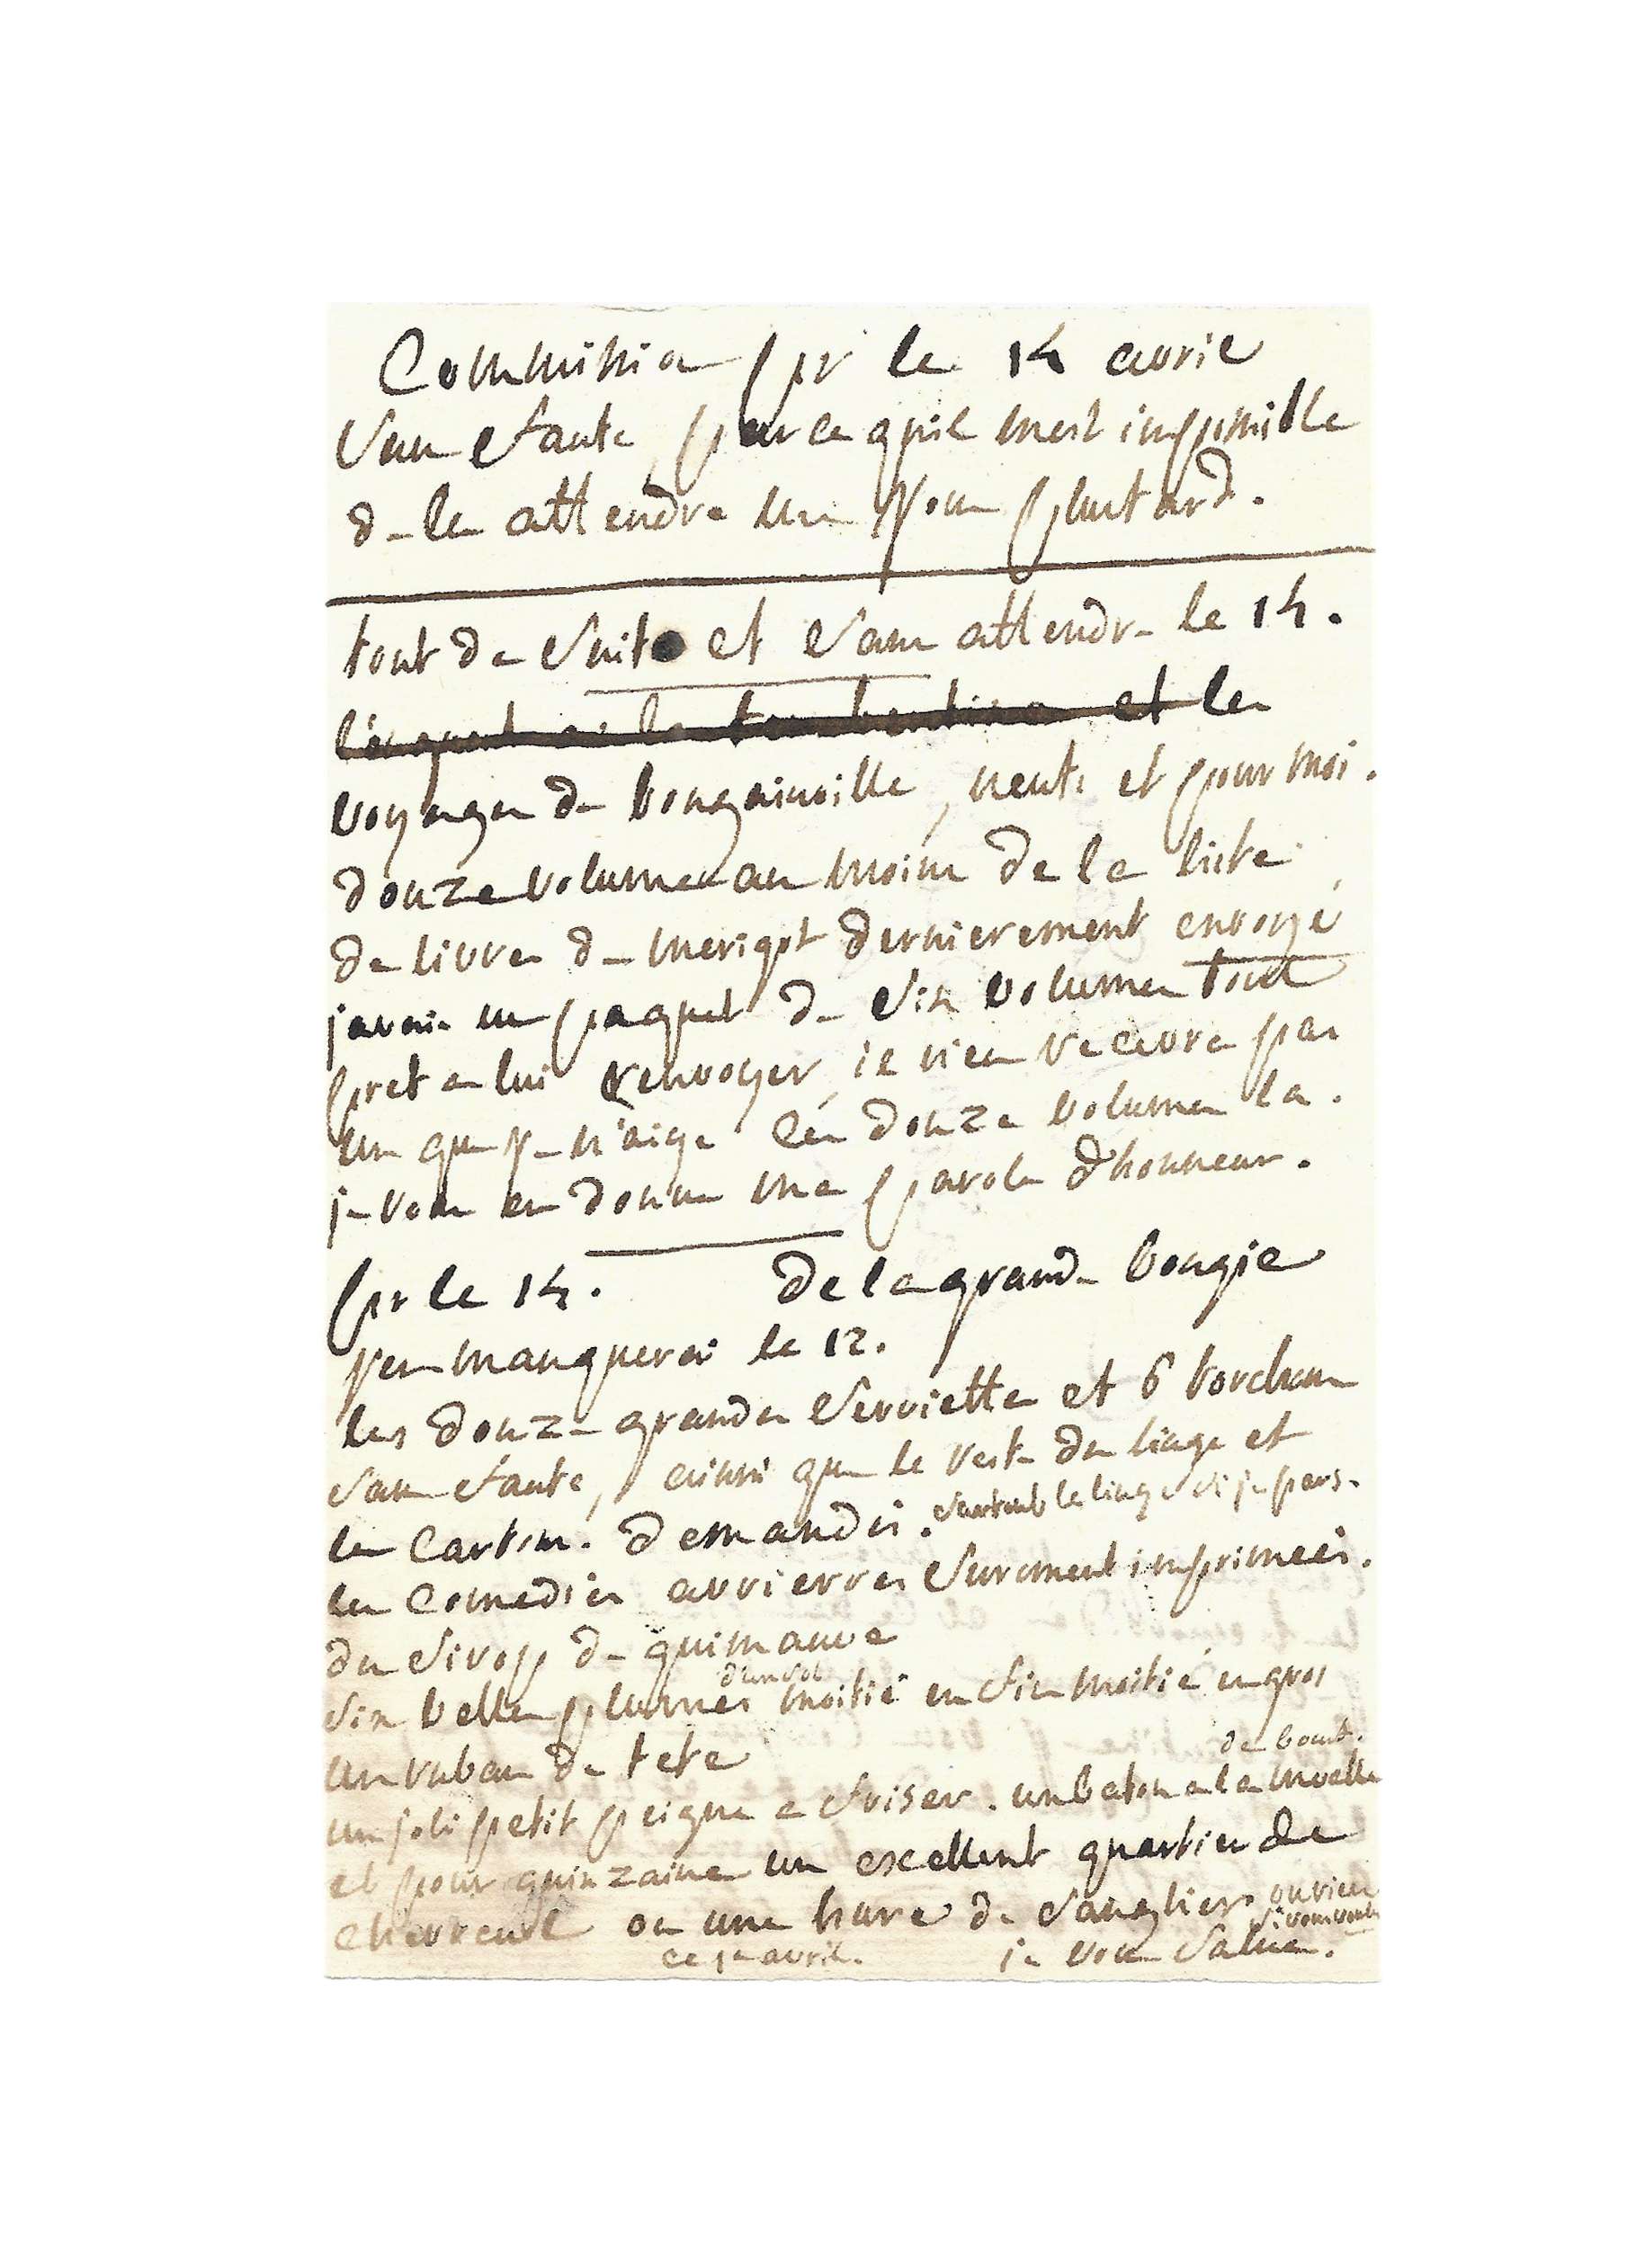 Commission pr le 14 avril
sans faute, parce quil mest impossible
de les attendre un jour plus tard.
tout de suite et sans attendre le 14.
et les
voyages de bougainville, neufs et pour moi.
douze volumes au moins de la liste
de livres de merigot dernierement envoyé
javais un paquet de six volumes tout
pret a lui renvoyer, il nien recevra pas
un que je n'aige ces douze volumes la.
je vous en donne ma parole dhonneur.
pr le 14. de la grande bougie
jen manquerai le 12.
les douze grandes serviettes et 6 torchons
sans faute, ainsi que le reste du linge et
les cartons. demandés. surtout le linge si je pars.
les comedies arrierres surement imprimees.
du sirop de guimauve
d'un sol
six belles plumes moitié en fin moitié en gros
un ruban de tete
de bouts.
un joli petit peigne a friser. un baton a la moelle
et pour quinzaine un excellent quartier de
chevreuil ou une hure de sanglier. ou rien
si vous voulez
ce 1er avril. je vous salue.